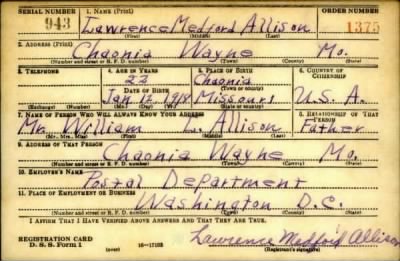 SERIAL NUMBER 1. NAME (Print) ORDER NUMBER
943 Lawrence Medford Allison 1375
(First) (Middle) (Last)
2. ADDRESS (Print)
Chaonia Wayne Mo.
(Number and street or R. F. D. number) (Town) (County) (State)
3. TELEPHONE 4. AGE IN YEARS 5. PLACE OF BIRTH 6. COUNTRY OF CITIZENSHIP
22 Chaonia
DATE OF BIRTH (Town or county)
Jan 12 1918 Missouri U.S.A.
(Exchange) (Number) (Mo.) (Day) (Yr.) (State or country)
7. NAME OF PERSON WHO WILL ALWAYS KNOW YOUR ADDRESS 8. RELATIONSHIP OF THAT PERSON
Mr. William L. Allison Father
(Mr., Mrs., Miss) (First) (Middle) (Last)
9. ADDRESS OF THAT PERSON
Chaonia Wayne Mo.
(Number and street or R. F. D. number) (Town) (County) (State)
10. EMPLOYER'S NAME
Postal Department
11. PLACE OF EMPLOYMENT OR BUSINESS
Washington D.C.
(Number and street or R. F. D. number) (Town) (County) (State)
I AFFIRM THAT I HAVE VERIFIED ABOVE ANSWERS AND THAT THEY ARE TRUE.
REGISTRATION CARD
D. S. S. Form 1 16—17105 Lawrence Medford Allison
(Registrant's signature)